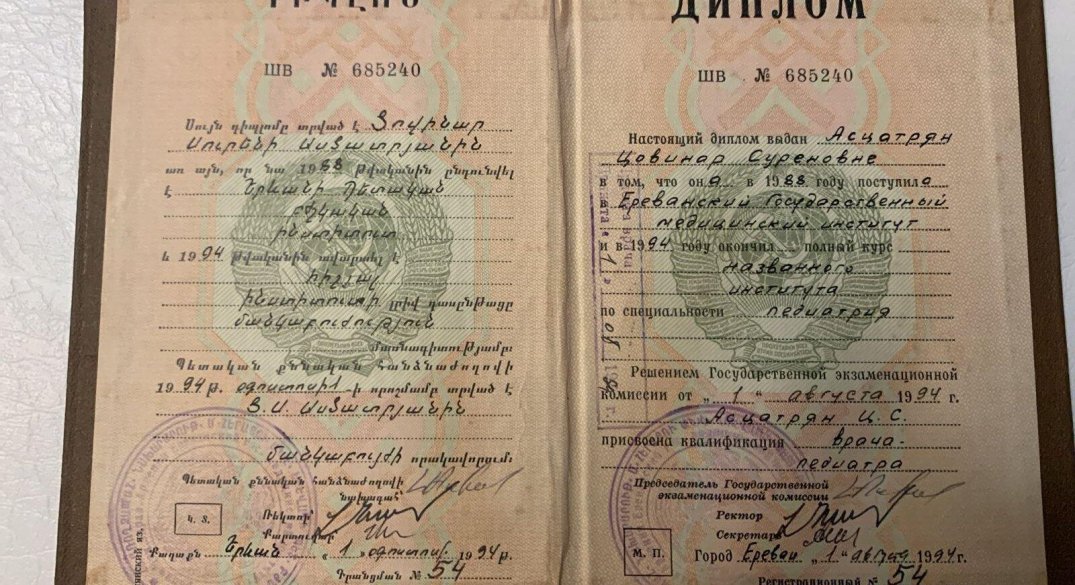 ԴԻՊԼՈՄ
ШВ № 685240
Սույն դիպլոմը տրված է Ծովինար
Սուրենի Ասցատրյանին
առ այն, որ նա 1988 թվականին ընդունվել
է Երևանի Պետական
բժշկական
ինստիտուտ
և 1994 թվականին ավարտել է
հիշյալ
ինստիտուտի լրիվ դասընթացը
մանկաբուժություն
մասնագիտությամբ:
Պետական քննական հանձնաժողովի
1994 թ. օգոստոսի 1-ի որոշմամբ տրված է
Ծ. Ս. Ասցատրյանին
մանկաբույժի որակավորում:
Պետական քննական հանձնաժողովի
նախագահ
Ռեկտոր
Քարտուղար
Կ. Տ.
Քաղաքն Երևան „1" օգոստոսի 1994 թ.
Գրանցման № 54
ДИПЛОМ
ШВ № 685240
Настоящий диплом выдан Асцатрян
Цовинар Суреновне
в том, что она в 1988 году поступила
в Ереванский Государственный
медицинский институт
и в 1994 году окончил полный курс
названного
института
по специальности педиатрия
Решением Государственной экзаменационной
комиссии от „1" августа 1994 г.
Асцатрян Ц. С.
присвоена квалификация врача-
педиатра
Председатель Государственной
экзаменационной комиссии
Ректор
Секретарь
М. П.
Город Ереван „1" августа 1994 г.
Регистрационный № 54